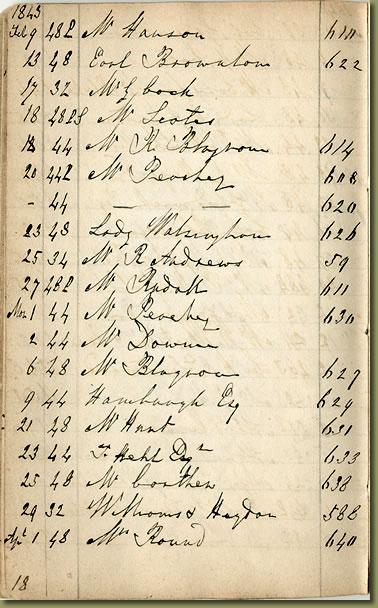 1843
Feb 9 48L Mr Hanson 611
13 48 Earl Brownlow 622
17 32 Mr G Cock
18 48LS Mr
18 44 Mr R Blagrove 614
20 44L Mr Peachey 608
- 44 — — 620
23 48 Lady Walsingham 626
25 34 Mr R Andrews 59
27 48L Mr 611
Mar 1 44 Mr Peachey 630
2 44 Mr Downes
6 48 Mr Blagrove 627
9 44 Hambrough Esq 629
21 48 Mr Hunt 631
23 44 Esqr 633
25 48 Mr 638
29 32 Williams & Haydon 588
Apl 1 48 Mr Round 640
18